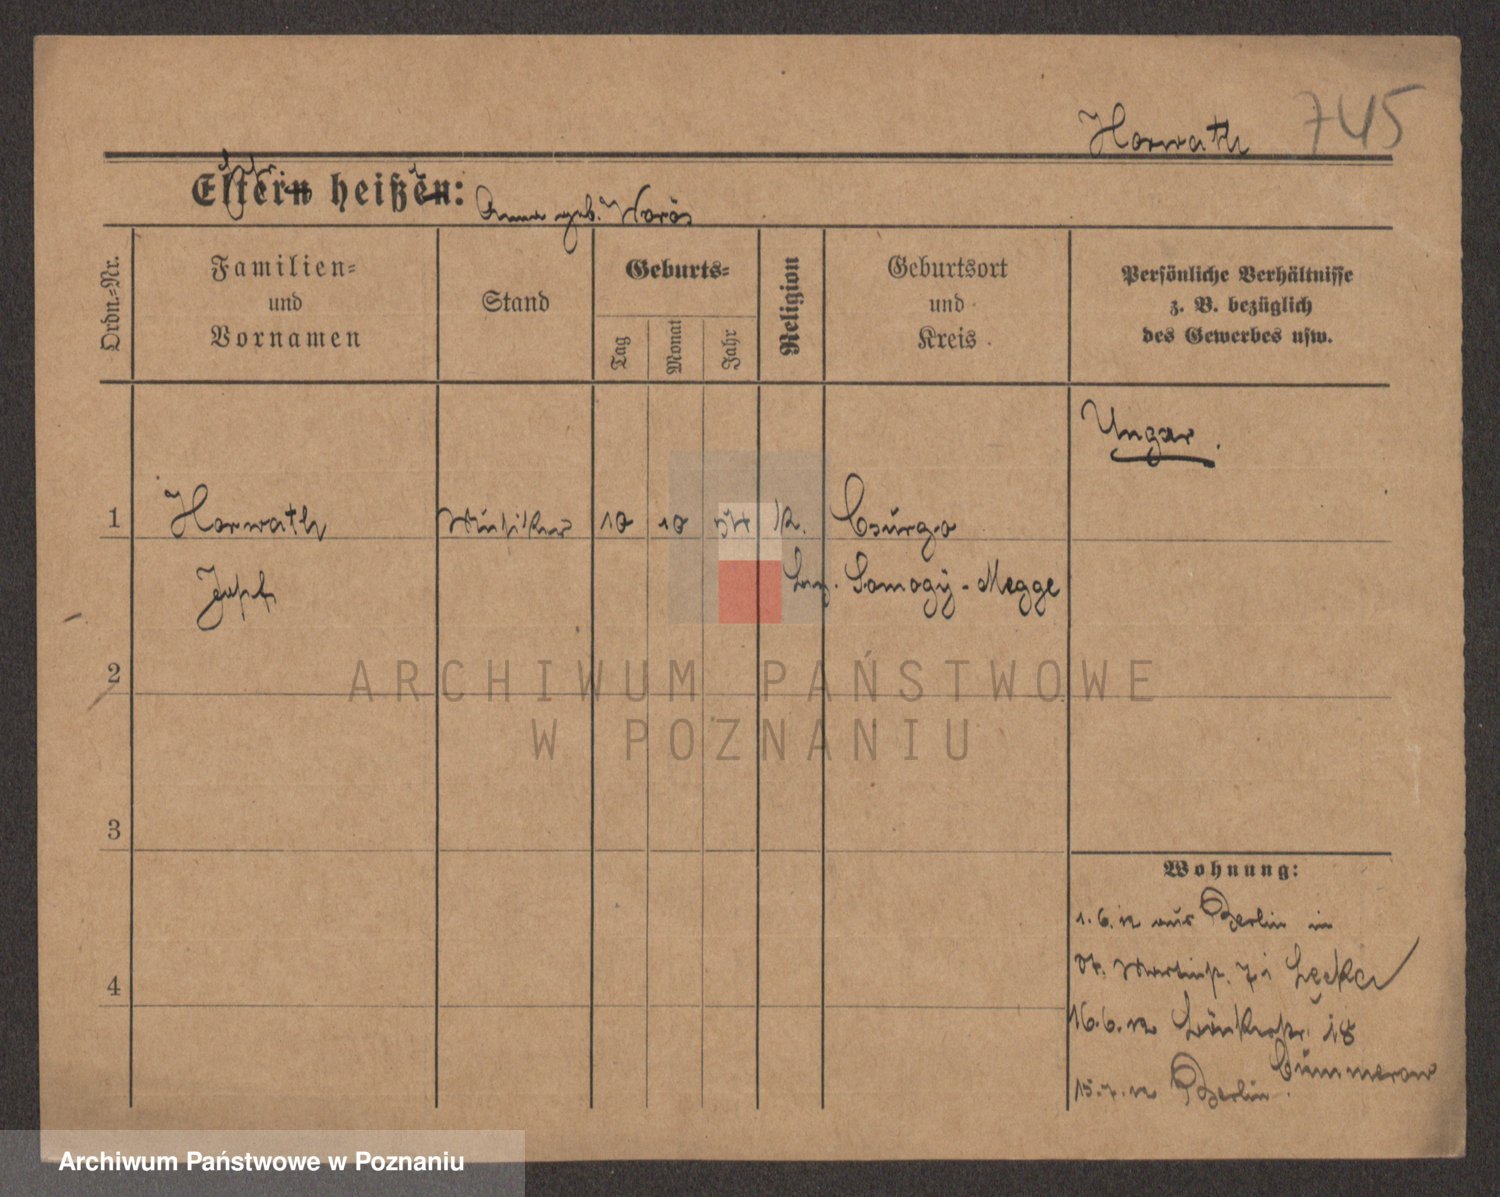 Horwath 745
Eltern heißen:
Anna geb. Vörös
Ordn.-Nr.
Familien-
und
Vornamen
Stand
Geburts-
Tag
Monat
Jahr
Religion
Geburtsort
und
Kreis
Persönliche Verhältnisse
z. B. bezüglich
des Gewerbes usw.
Ungar.
1 Horwath Musiker 10 10 K. Csurgo
Josef Somogy-Megge
2
3
4
Wohnung:
1.6.12 aus Berlin in
St. Martinstr.
16.6.12 18
Cummerow
15.7.12 Berlin.
ARCHIWUM PAŃSTWOWE
W POZNANIU
Archiwum Państwowe w Poznaniu